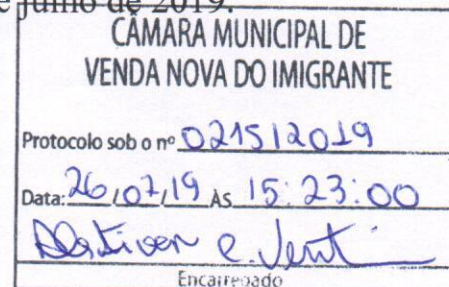 e julho de 2019.
CÂMARA MUNICIPAL DE
VENDA NOVA DO IMIGRANTE
Protocolo sob o nº 0215/2019
Data: 26/07/19 ÀS 15:23:00
Encarregado